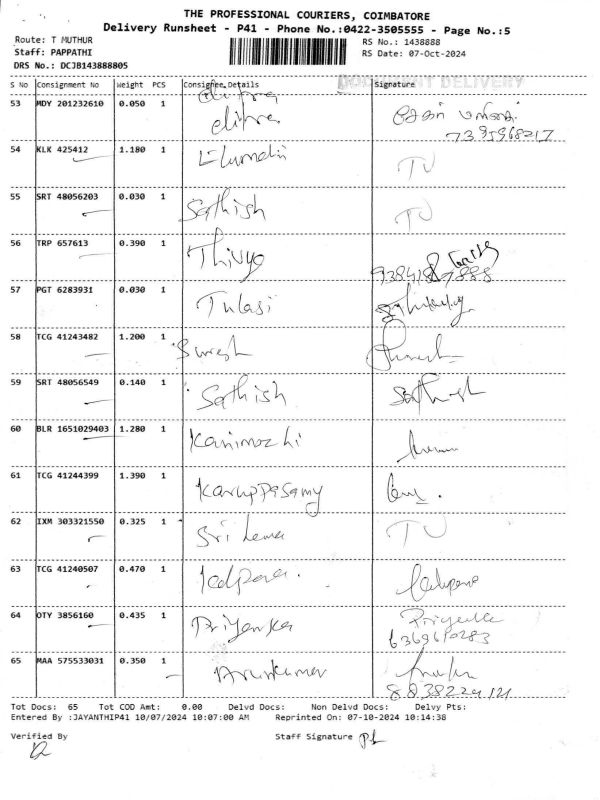 THE PROFESSIONAL COURIERS, COIMBATORE
Delivery Runsheet - P41 - Phone No.:0422-3505555 - Page No.:5
Route: T MUTHUR RS No.: 1438888
Staff: PAPPATHI RS Date: 07-Oct-2024
DRS No.: DCJB143888805
DOCUMENT DELIVERY
S No Consignment No Weight PCS Consignee Details Signature
53 MDY 201232610 0.050 1
7395968217
54 KLK 425412 1.180 1 Elumalai TU
55 SRT 48056203 0.030 1 Sathish TU
56 TRP 657613 0.390 1 Thivya
57 PGT 6283931 0.030 1 Tulasi
58 TCG 41243482 1.200 1 Suresh
59 SRT 48056549 0.140 1 Sathish Sathish
60 BLR 1651029403 1.280 1 Kanimozhi
61 TCG 41244399 1.390 1 Karuppasamy
62 IXM 303321550 0.325 1 TU
63 TCG 41240507 0.470 1
64 OTY 3856160 0.435 1 Priyanka Priyanka
6369610283
65 MAA 575533031 0.350 1 Arunkumar
8838224121
Tot Docs: 65 Tot COD Amt: 0.00 Delvd Docs: Non Delvd Docs: Delvy Pts:
Entered By :JAYANTHIP41 10/07/2024 10:07:00 AM Reprinted On: 07-10-2024 10:14:38
Verified By Staff Signature